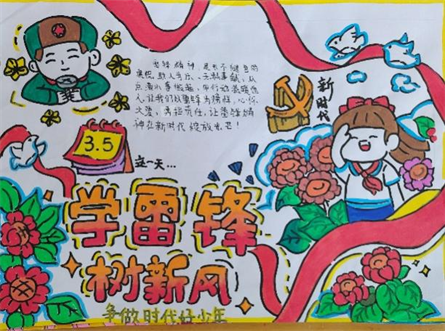 雷锋精神是
助人为乐、无私奉献，从
点滴小事做起，用行动温暖他
人，让我们以雷锋为榜样，心怀
大爱，勇担责任，让雷锋精
神在新时代绽放光芒！
新时代
3.5
这一天...
学雷锋
树新风
争做时代好少年